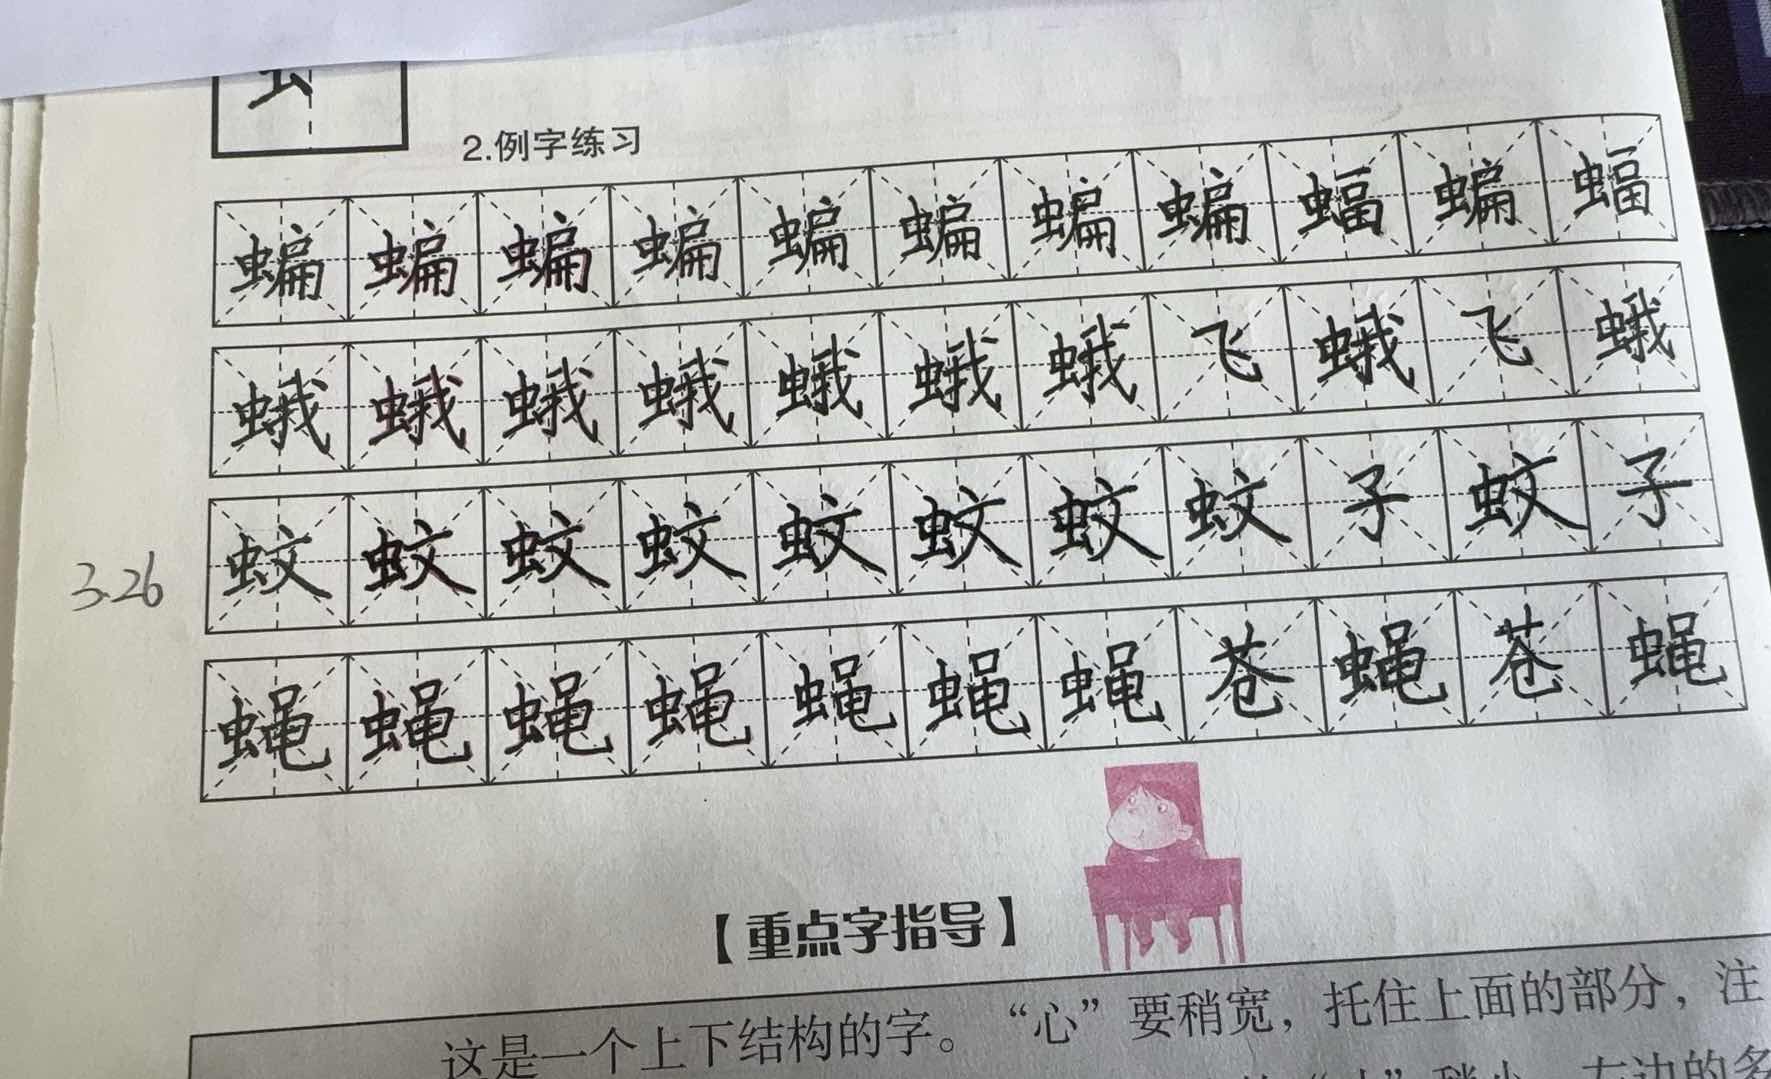 2.例字练习
蝙蝙蝙蝙蝙蝙蝙蝙蝠蝙蝠
蛾蛾蛾蛾蛾蛾蛾飞蛾飞蛾
蚊蚊蚊蚊蚊蚊蚊蚊子蚊子
3.26
蝇蝇蝇蝇蝇蝇蝇苍蝇苍蝇
【重点字指导】
这是一个上下结构的字。“心”要稍宽，托住上面的部分，注